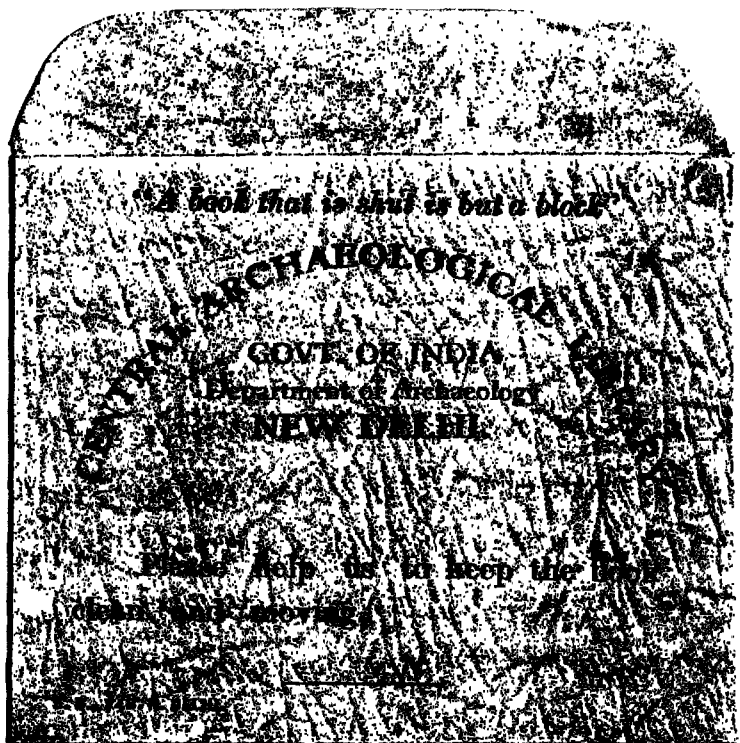 "A book that is shut is but a block"
CENTRAL ARCHAEOLOGICAL LIBRARY
GOVT. OF INDIA
Department of Archaeology
NEW DELHI.
Please help us to keep the book
clean and moving.